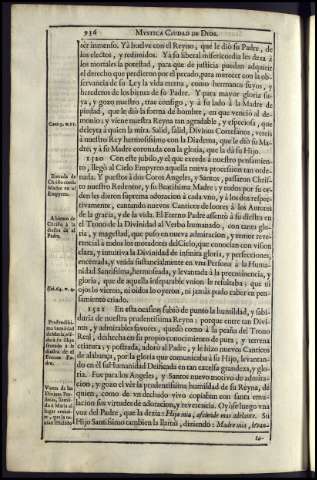 936 MYSTICA CIUDAD DE DIOS.
cer inmenso. Yà buelve con el Reyno, que le diò su Padre, de
los electos, y redimidos. Yà su liberal misericordia les dexa à
los mortales la potestad, para que de justicia puedan adquirir
el derecho que perdieron por el pecado, para merecer con la ob-
servancia de su Ley la vida eterna, como hermanos suyos, y
herederos de los bienes de su Padre. Y para mayor gloria su-
ya, y gozo nuestro, trae consigo, y à su lado à la Madre de
piedad, que le diò la forma de hombre, en que venciò al de-
monio; y viene nuestra Reyna tan agradable, y especiosa, que
deleyta à quien la mira. Salid, salid, Divinos Cortesanos, vereis
à nuestro Rey hermosissimo con la Diadema, que le diò su Ma-
dre; y à su Madre coronada con la gloria, que la dà su Hijo.
1520 Con este jubilo, y el que excede à nuestro pensamien-
to, llegò al Cielo Empyreo aquella nueva procession tan orde-
nada. Y puestos à dos Coros Angeles, y Santos, passaron Christo
nuestro Redentor, y su Beatissima Madre; y todos por su or-
den les dieron suprema adoracion à cada uno, y à los dos respec-
tivamente, cantando nuevos Canticos de loores à los Autores
de la gracia, y de la vida. El Eterno Padre assentò à su diestra en
el Trono de la Divinidad al Verbo humanado, con tanta glo-
ria, y magestad, que puso en nueva admiracion, y temor reve-
rencial à todos los moradores del Cielo, que conocian con vision
clara, y intuitiva la Divinidad de infinita gloria, y perfecciones,
encerrada, y unida substancialmente en una Persona à la Huma-
nidad Santissima, hermoseada, y levantada à la preeminencia, y
gloria, que de aquella inseparable union le resultaba; que ni
ojos lo vieron, ni oidos lo oyeron, ni jamàs pudo caber en pen-
samiento criado.
En esta ocasion subiò de punto la humildad, y sabi-
duria de nuestra prudentissima Reyna: porque entre tan Divi-
nos, y admirables favores, quedò como à la peaña del Trono
Real, deshecha en su propio conocimiento de pura, y terrena
criatura; y postrada, adorò al Padre, y le hizo nuevos Canticos
de alabança, por la gloria que comunicaba à su Hijo, levantan-
do en èl su Humanidad Deificada en tan excelsa grandeza, y glo-
ria. Fue para los Angeles, y Santos nuevo motivo de admira-
cion, y gozo el vèr la prudentissima humildad de su Reyna, de
quien, como de un dechado vivo copiaban con santa emu-
lacion sus virtudes de adoracion, y reverencia. Oyòse luego una
voz del Padre, que la dezia: Hija mia, asciende mas adelante. Su
Hijo Santissimo tambien la llamò, diziendo: Madre mia, levan-
ta-
Entrada de
Christo
en el
Empyreo.
Assiento de
Christo à la
diestra de el
Padre.